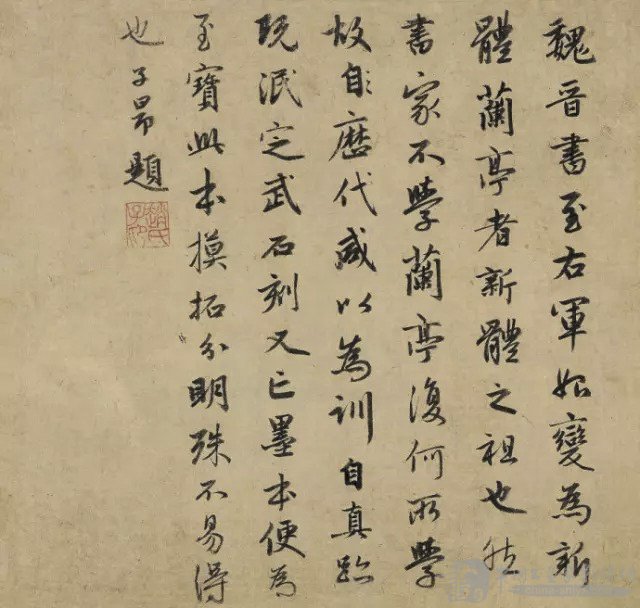 魏晋書至右軍始變為新
體蘭亭者新體之祖也然
書家不學蘭亭復何所學
故自歷代咸以為訓自真跡
既泯定武石刻又亡墨本便為
至寶此本摸拓分明殊不易得
也子昂題
趙氏子昂